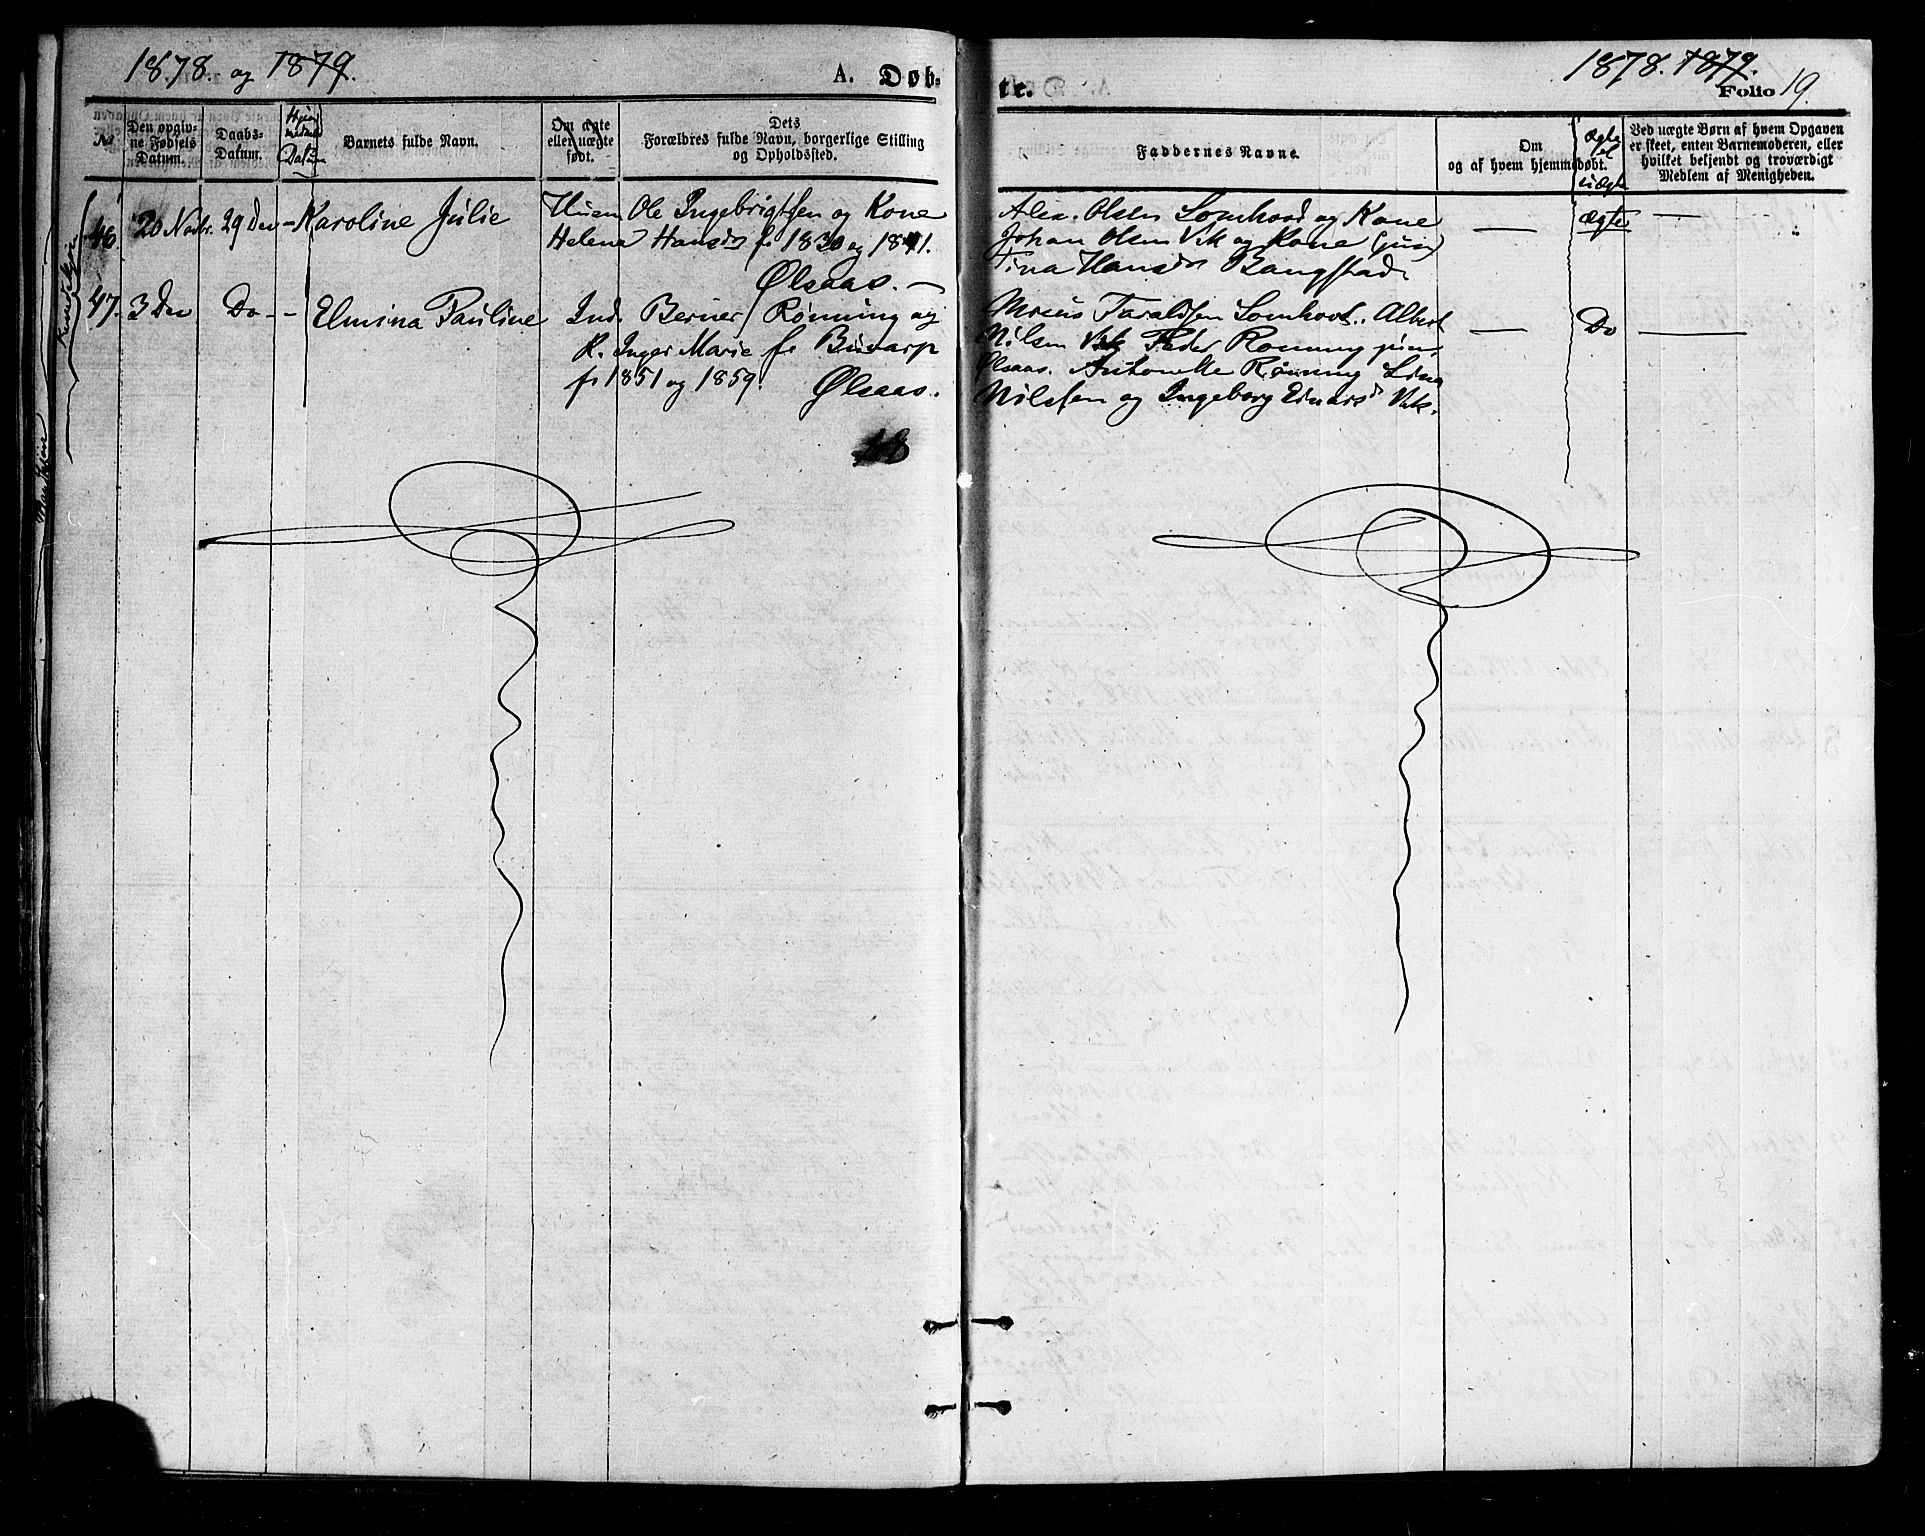 1878. og 1879.
A. Døb-
№
Den opgiv-
ne Fødsels
Datum.
Daabs-
Datum.
Datum
Barnets fulde Navn.
Om ægte
eller uægte
født.
Dets
Forældres fulde Navn, borgerlige Stilling
og Opholdssted.
46. 20 Novbr. 29 Dec - Karoline Julie Huusm Ole Ingebrigtsen og Kone
Helena Hansd. f. 1830 og 1841.
Ølsaas.
47. 3 Dec Do - - Elmina Pauline Ind. Berner Rønning og
K. Inger Marie
f. 1851 og 1859. Ølsaas.
18
1878. 1879.
te.
Folio 19.
Faddernes Navne.
Om
og af hvem hjemmedøbt.
Ægte
el
uægte
Ved uægte Børn af hvem Opgaven
er skeet, enten Barnemoderen, eller
hvilket bekjendt og troværdigt
Medlem af Menigheden.
Alex. Olsen Lomhood og Kone — ægte —
Johan Olsen Vik og Kone (jun)
Tina Hansd. Bangstad.
Taraldsen Albert — Do —
Nilsen Vik Peder Rønning jun.
Ølsaas. Rønning Lina
Nilssen og Ingeborg Einarsd. Vik.